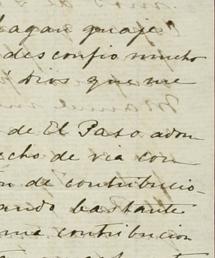 hagan guaje
desconfio mucho
Dios que me
de El Paso, adon
echo de via con
n de contribucio-
ando bastante
me contribucion